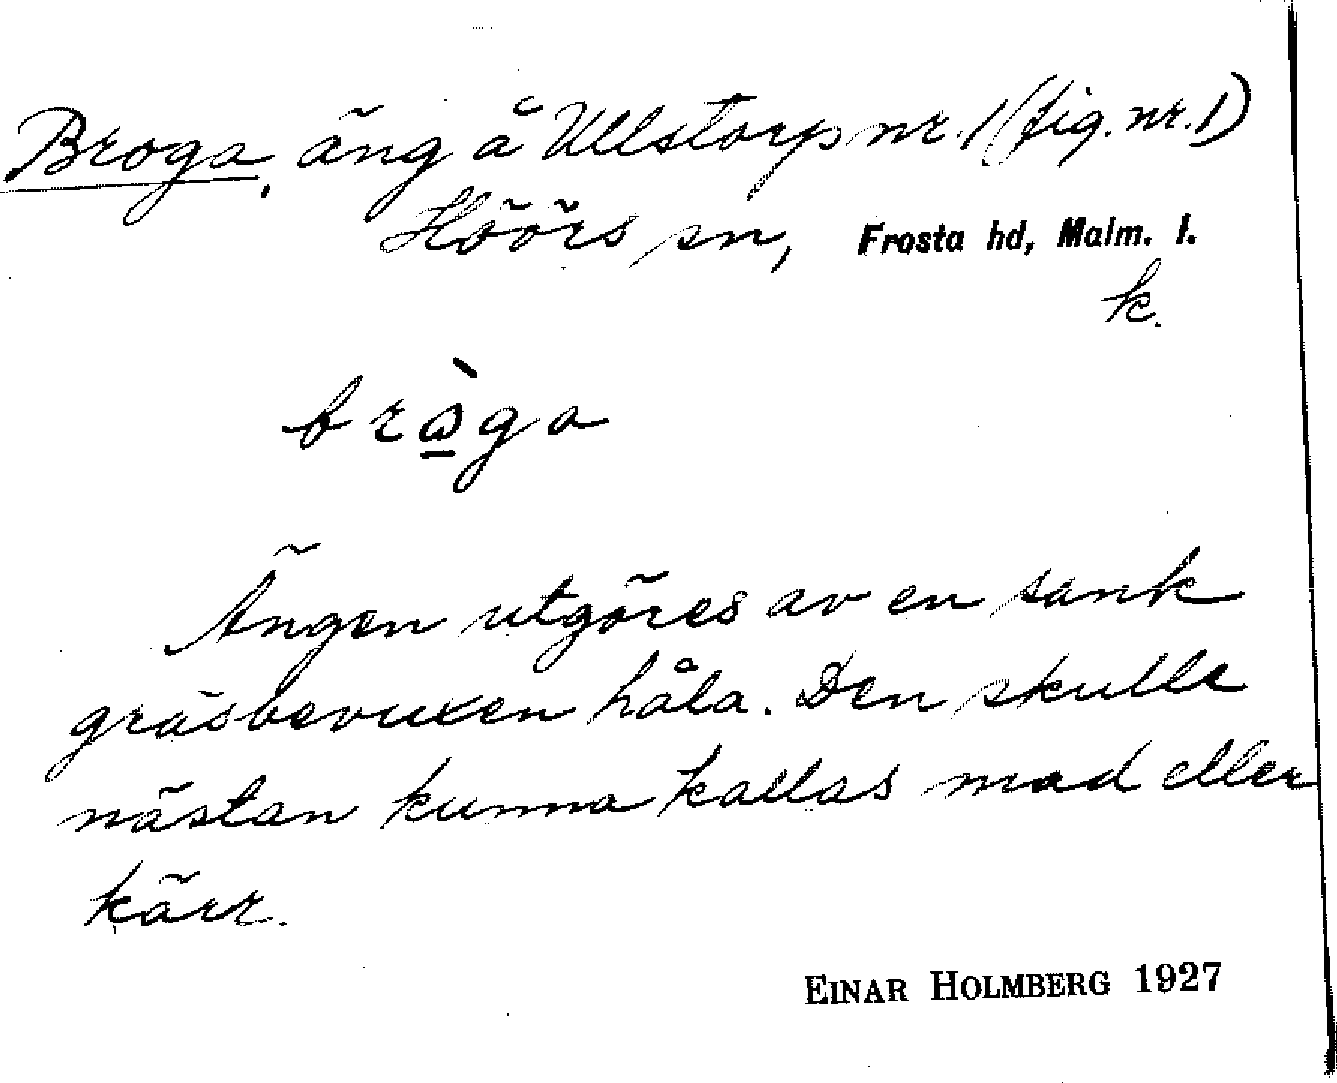 Broga, äng å Ullstorp nr. 1 (fig. nr. 1)
Höörs sn, Frosta hd, Malm. l.
k.
brὼ̲ga
Ängen utgöres av en sank
gräsbevuxen håla. Den skulle
nästan kunna kallas mad eller
kärr.
EINAR HOLMBERG 1927